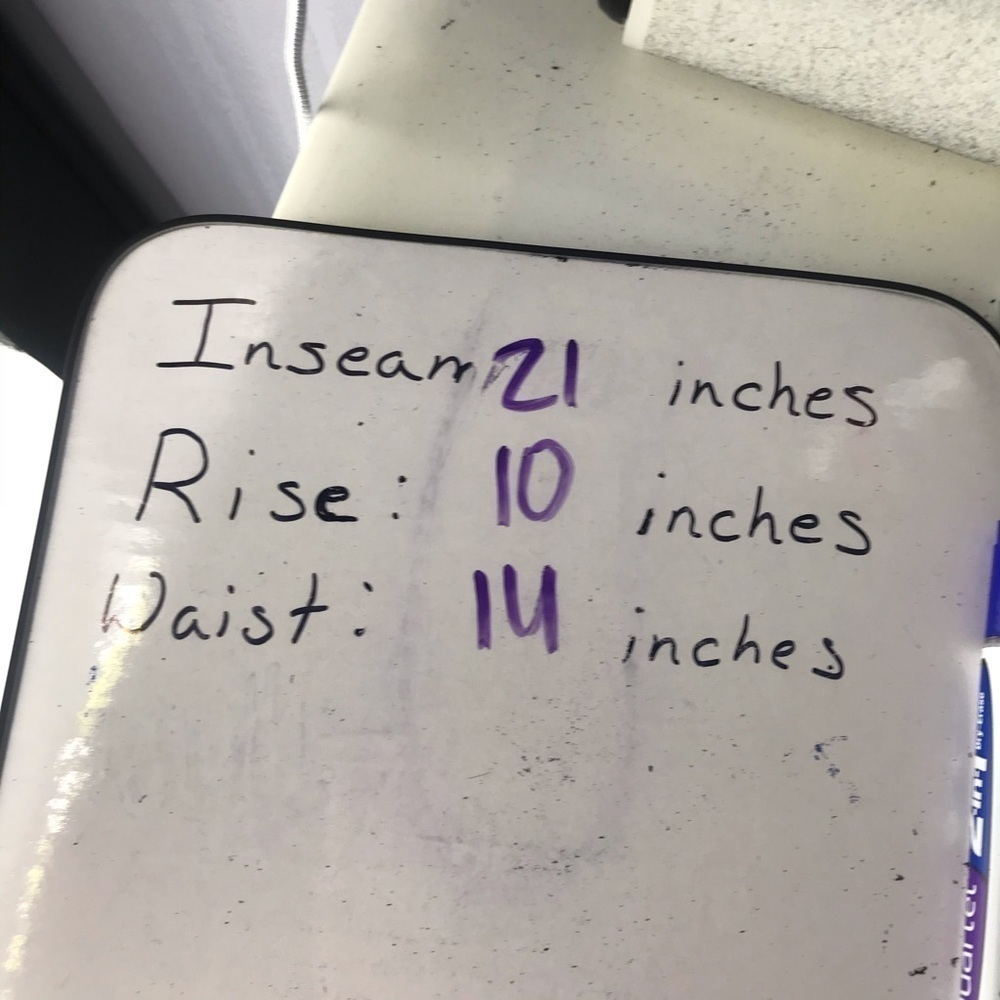 Inseam 21 inches
Rise: 10 inches
Waist: 14 inches
2-in-1 Dry-Erase